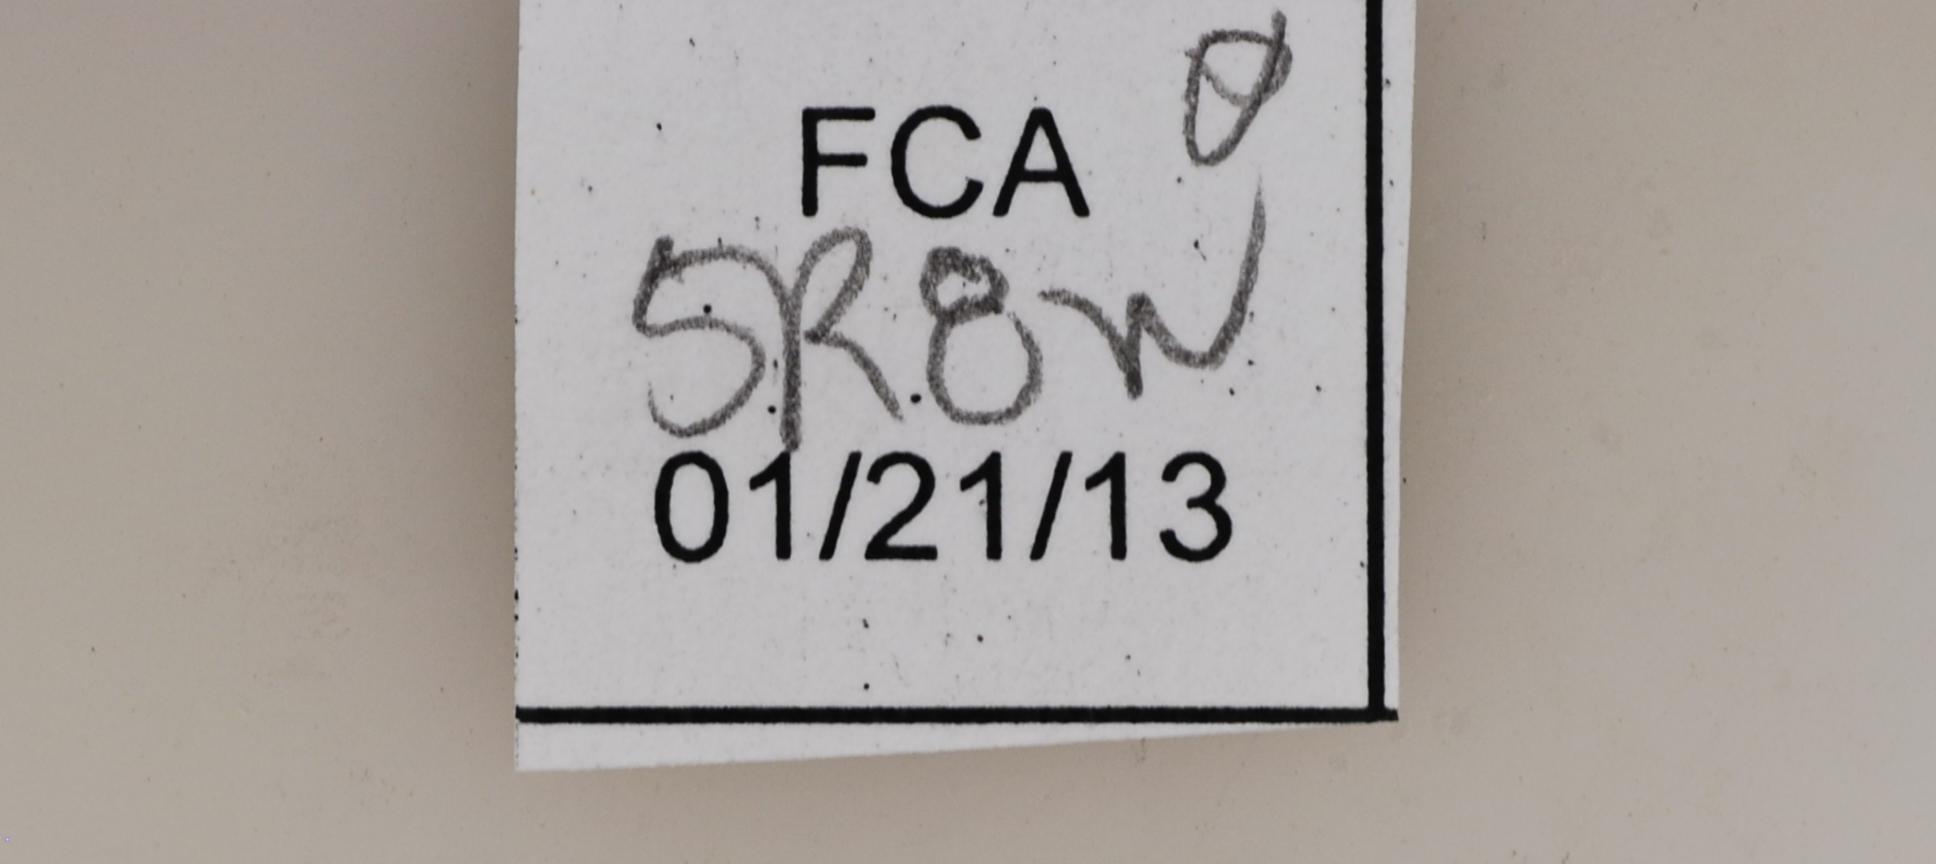 FCA
5R8W
01/21/13